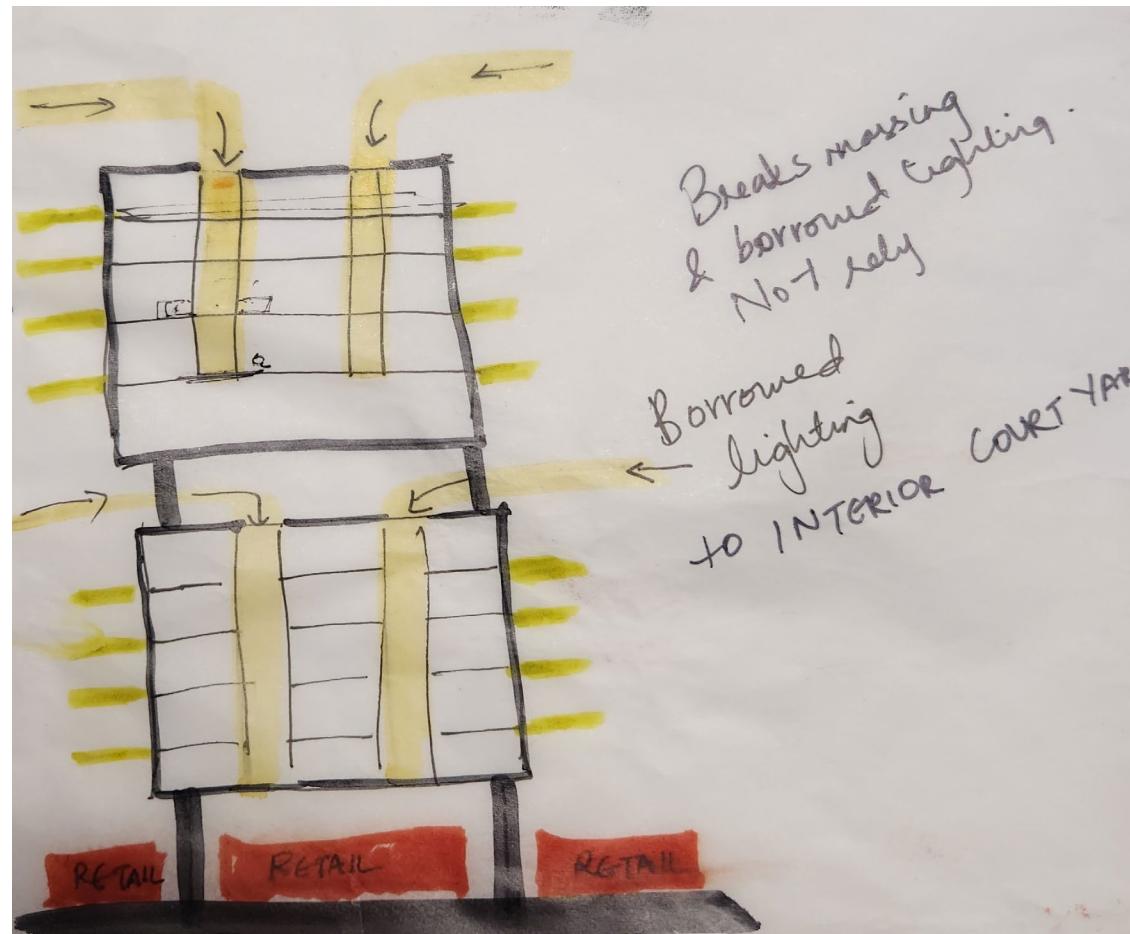 Breaks massing
& borrowed lighting.
Not rely
Borrowed
lighting
to INTERIOR COURTYAR
RETAIL
RETAIL
RETAIL